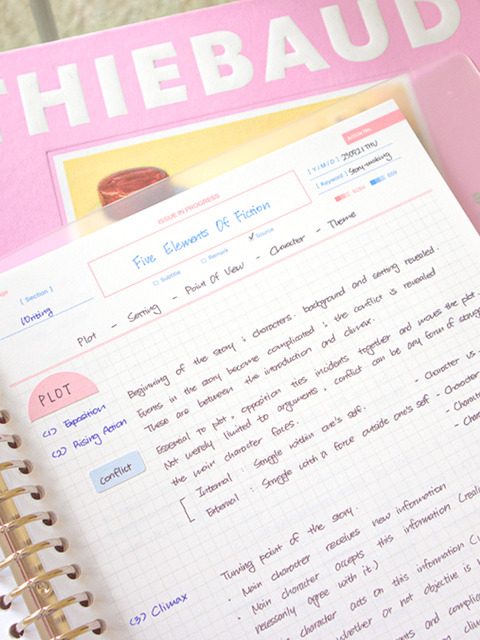 THIEBAUD
Article No.
ISSUE IN PROGRESS
[ Y / M / D ] 230921 THU
[ Keyword ] Story-making
Five Elements Of Fiction
Subtitle Remark Source
[ Section ]
Writing
Plot - Setting - Point Of View - Character - Theme
PLOT
(1) Exposition
Beginning of the story ; characters. background and setting revealed.
(2) Rising Action
Events in the story become complicated ; the conflict is revealed
These are between the introduction and climax.
conflict
Essential to plot, opposition ties incidents together and moves the plot.
Not merely limited to arguments, conflict can be any form of
the main character faces.
Internal : Struggle within one's self. - Character vs.
External : Struggle with a force outside one's self - Character
(3) Climax
Turning point of the story.
• Main character receives new information
• Main character accepts this information
necessarily agree with it.)
character acts on this information
whether or not objective is